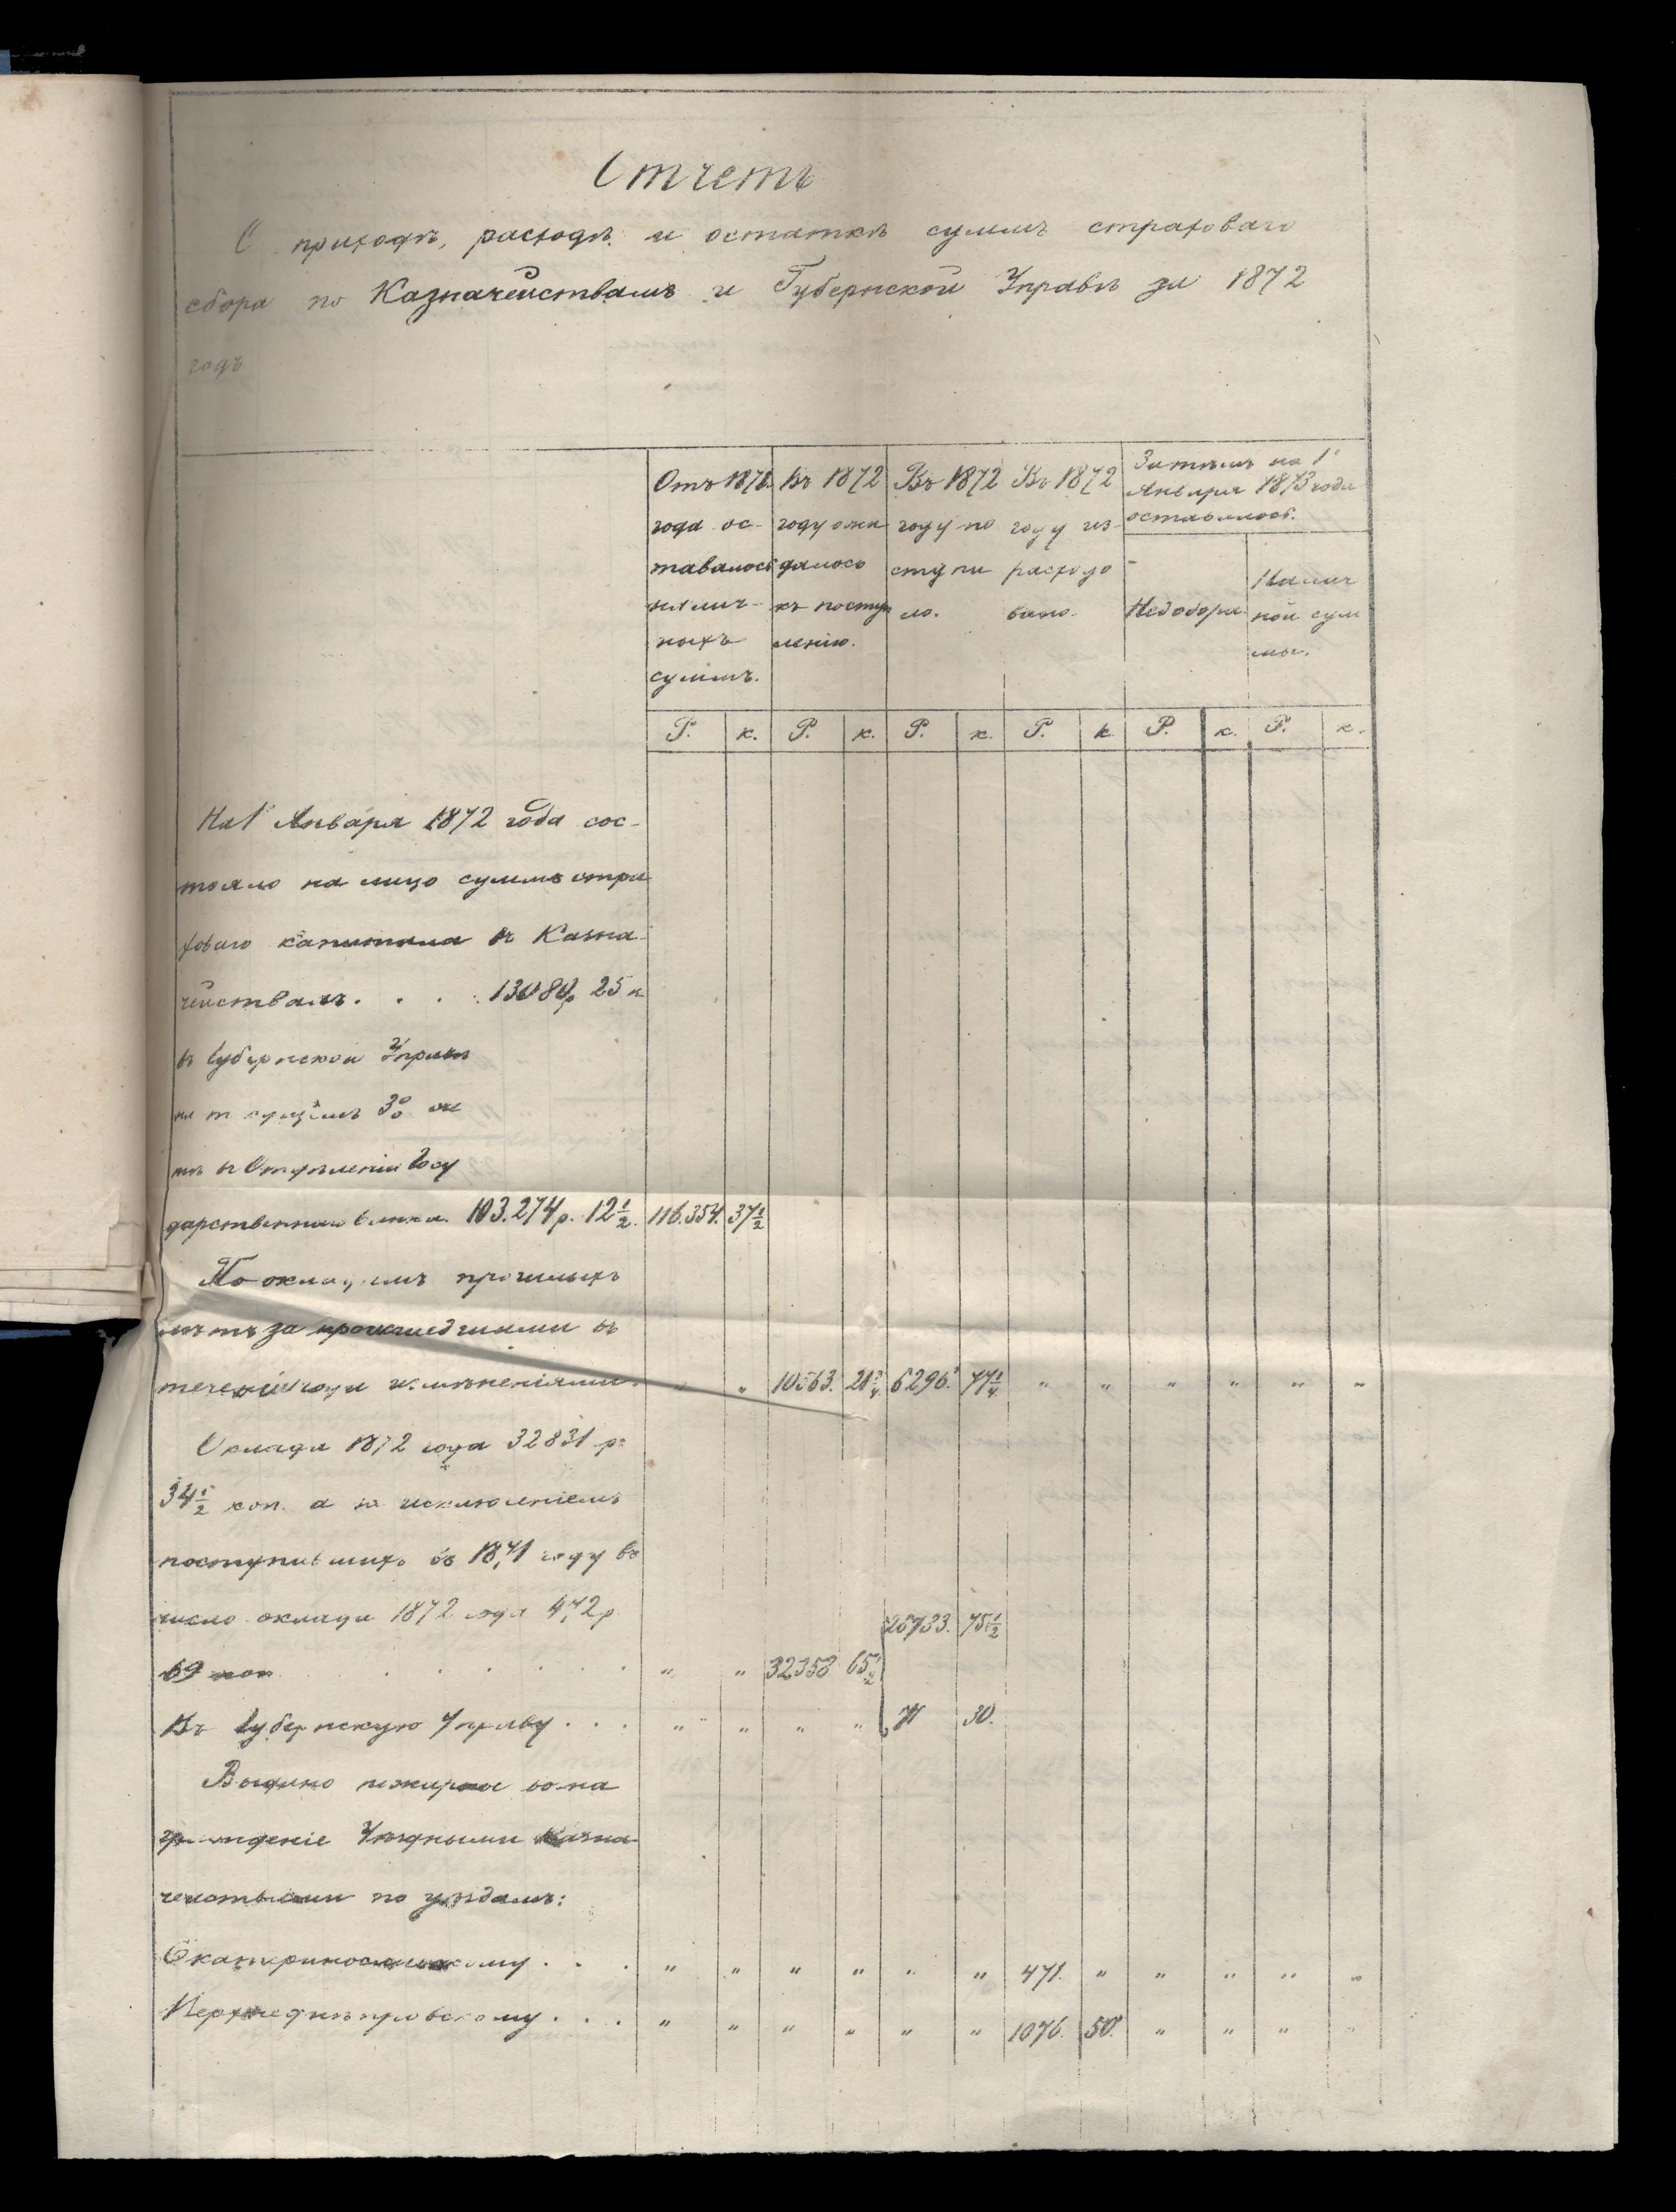 Отчетъ
О приходѣ, расходѣ и остаткѣ суммъ страховаго
сбора по Казначействамъ и Губернской Управѣ за 1872
годъ
Отъ 1871 года оставалось наличныхъ суммъ.
Въ 1872 году ожидалось къ поступленію.
Въ 1872 году поступило.
Въ 1872 году израсходовано.
Затѣмъ на 1е Января 1873 года оставалось.
Недобора.
Наличной суммы.
Р. к. Р. к. Р. к. Р. к. Р. к. Р. к.
На 1е Января 1872 года сос-
тояло на лицо суммъ стра
ховаго капитала въ Казна-
чействахъ. . . . 13080р 25 к
въ Губернской Управѣ
на т ущимъ 3%
въ Отдѣленіи Госу
дарственнаго банка. 103.274 р. 12½. 116.354. 37½
По окладамъ прошлыхъ
лѣтъ за происшедшими въ
теченіи года измѣненіями. " " 10563. 21¾ 6296. 77¼ " " " " " "
Оклада 1872 года 32831 р.
34½ коп. а за исключеніемъ
поступившихъ въ 1871 году въ
число оклада 1872 года 472 р
69 коп. . . . . . . " " 32358 65½ 25733. 75½
Въ Губернскую Управу . . . " " " " 71 30.
Выдано пожарное возна
гражденіе Уѣздными Казна
чействами по уѣздамъ:
Екатеринославскому . . . " " " " " " 471. " " " " "
Верхнеднѣпровскому . . . " " " " " " 1076. 50. " " " "